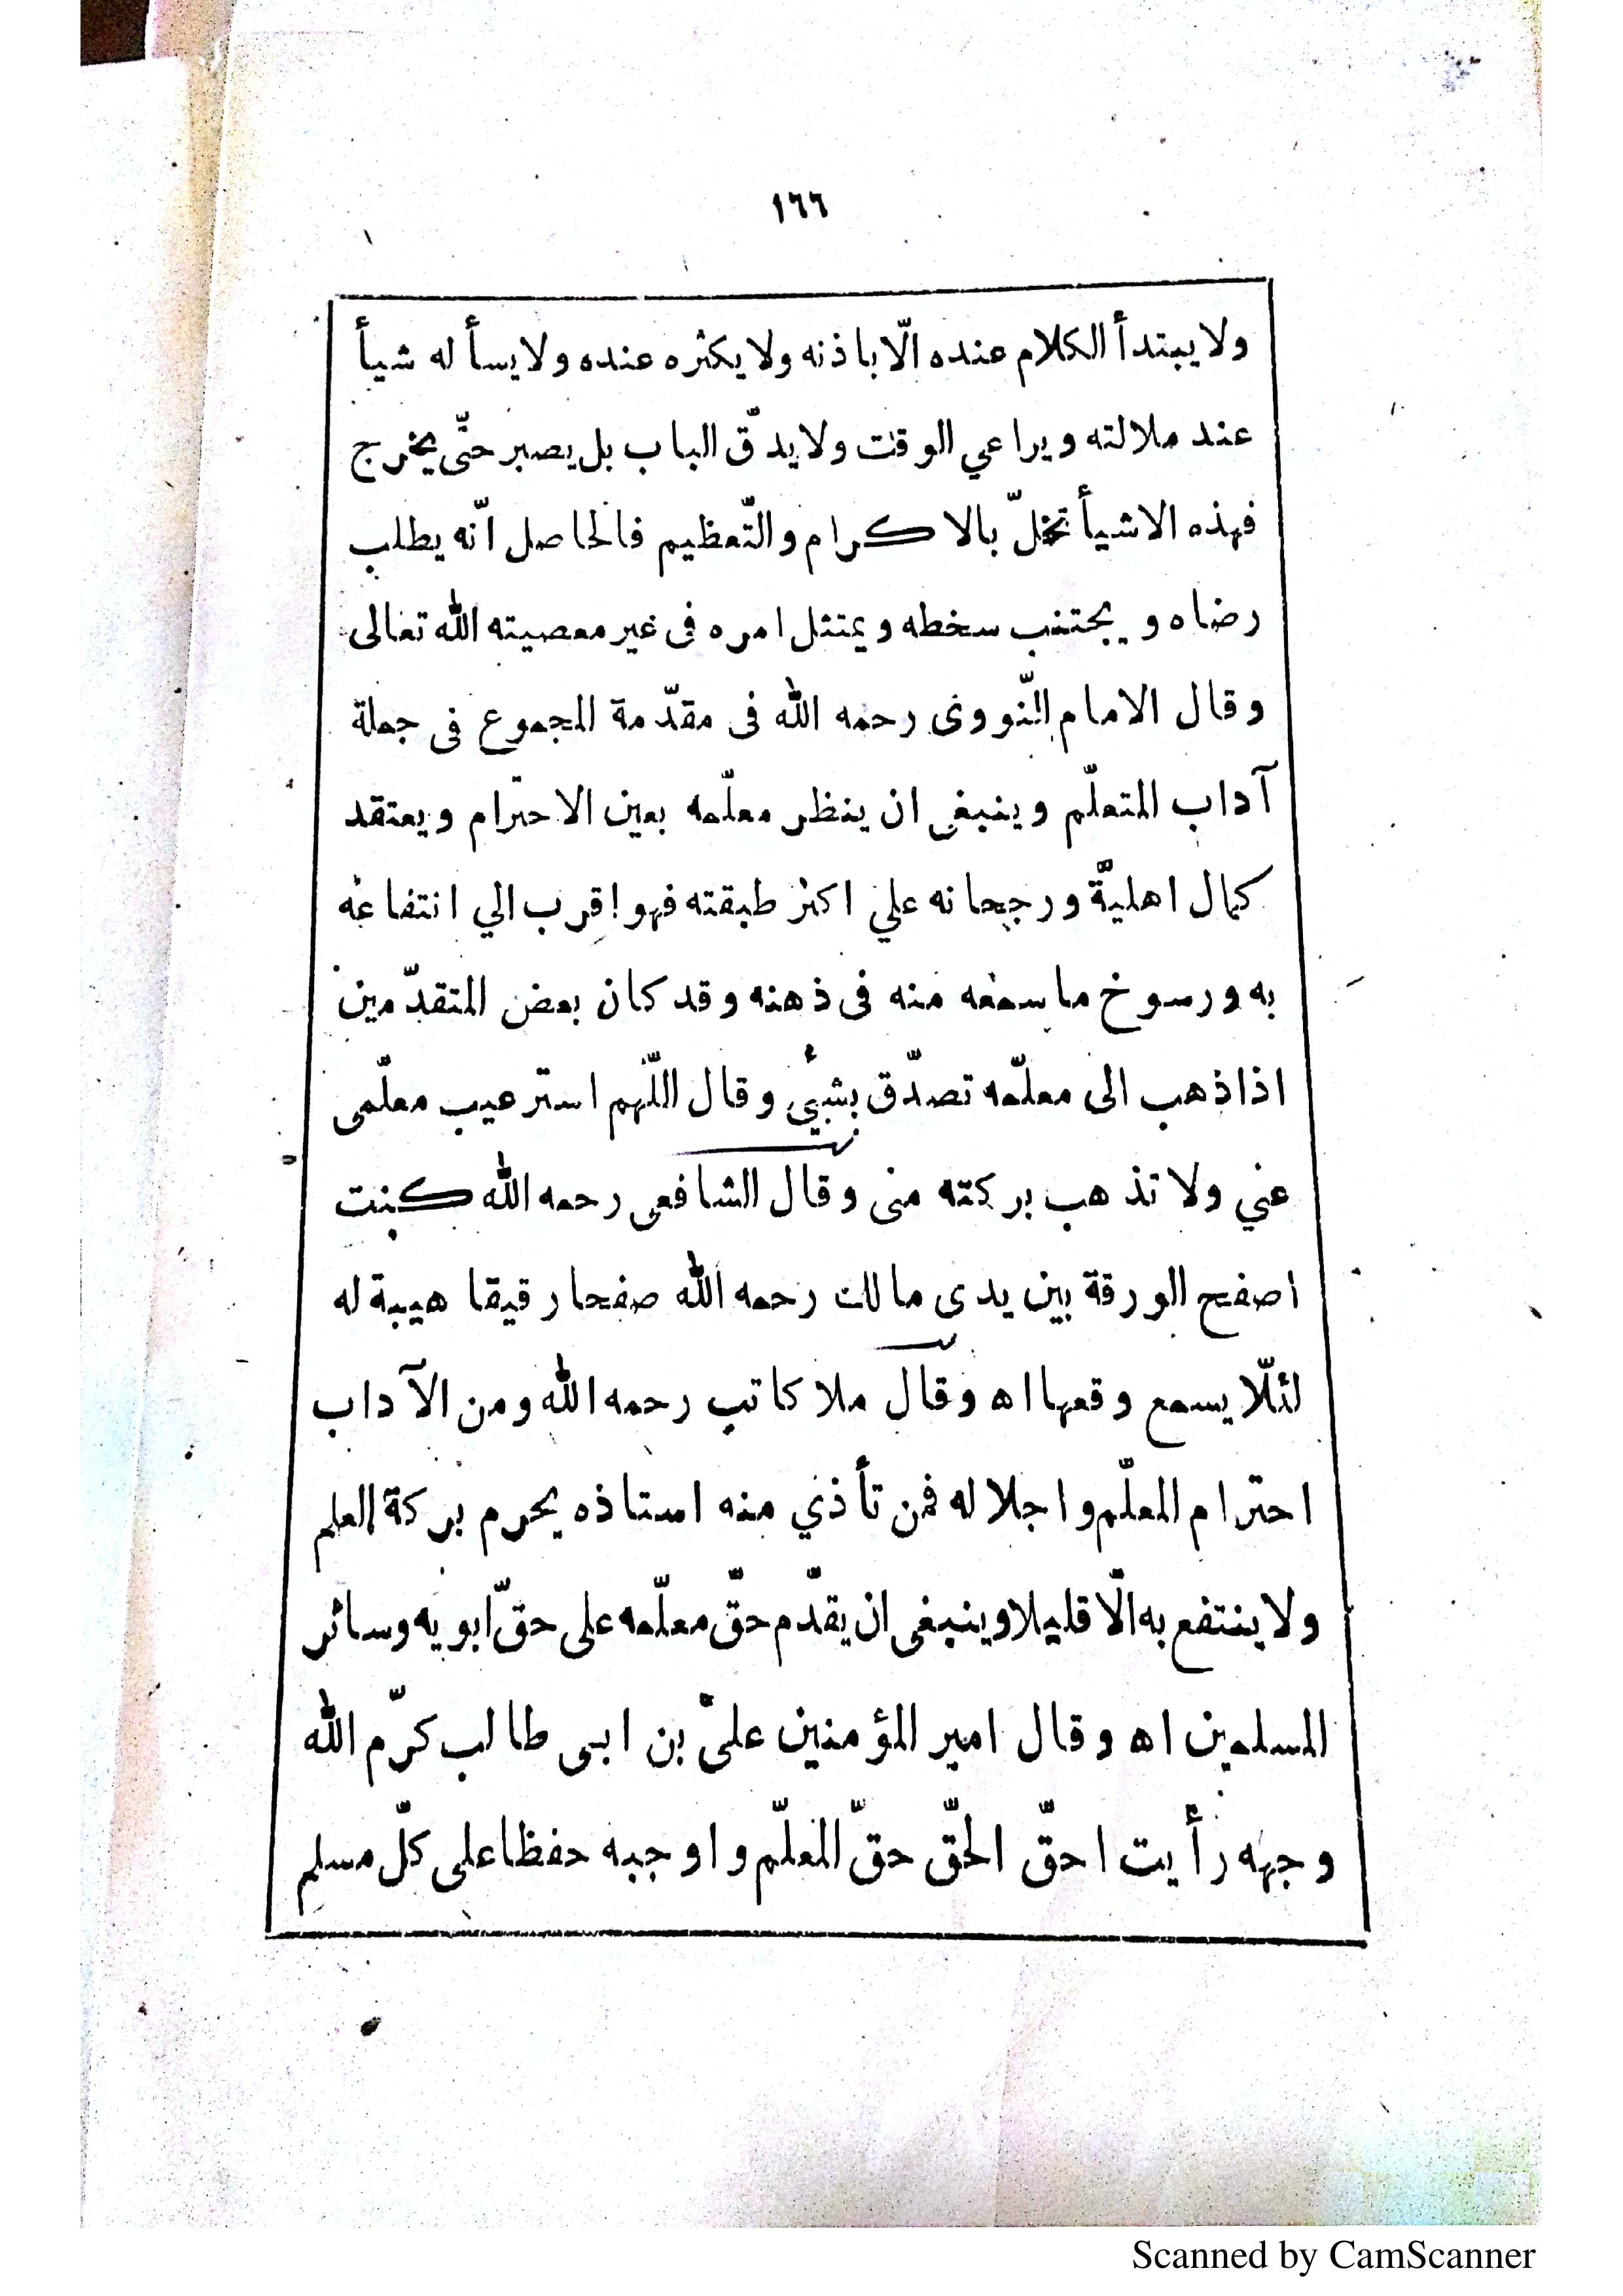 ١٦٦
ولا يبتدأ الكلام عنده الّا باذنه ولا يكثره عنده ولا يسأ له شيأ
عند ملالته ويراعي الوقت ولا يدقّ الباب بل يصبر حتّى يخرج
فهذه الاشيأ تخلّ بالاكرام والتّعظيم فالحاصل انّه يطلب
رضاه ويجتنب سخطه ويمتثل امره فى غير معصيته الله تعالى
وقال الامام النّووى رحمه الله فى مقدّمة المجموع فى جملة
آداب المتعلّم وينبغى ان ينظر معلّمه بعين الاحترام ويعتقد
كمال اهليّة ورجحانه علي اكثر طبقته فهو اقرب الي انتفاعه
به ورسوخ ما سمعه منه فى ذهنه وقد كان بعض المتقدّمين
اذا ذهب الى معلّمه تصدّق بشيئ وقال اللّهم استر عيب معلّمى
عني ولا تذهب بركته منى وقال الشافعى رحمه الله كنت
اصفح الورقة بين يدى مالك رحمه الله صفحا رقيقا هيبة له
لئلّا يسمع وقعها اه وقال ملا كاتب رحمه الله ومن الآداب
احترام المعلّم واجلا له فمن تأذي منه استاذه يحرم بركة العلم
ولا ينتفع به الّا قليلا وينبغى ان يقدّم حقّ معلّمه على حقّ ابويه وسائر
المسلمين اه وقال امير المؤمنين علىّ بن ابى طالب كرّم الله
وجهه رأيت احقّ الحقّ حقّ المعلّم واوجبه حفظا على كلّ مسلم
Scanned by CamScanner